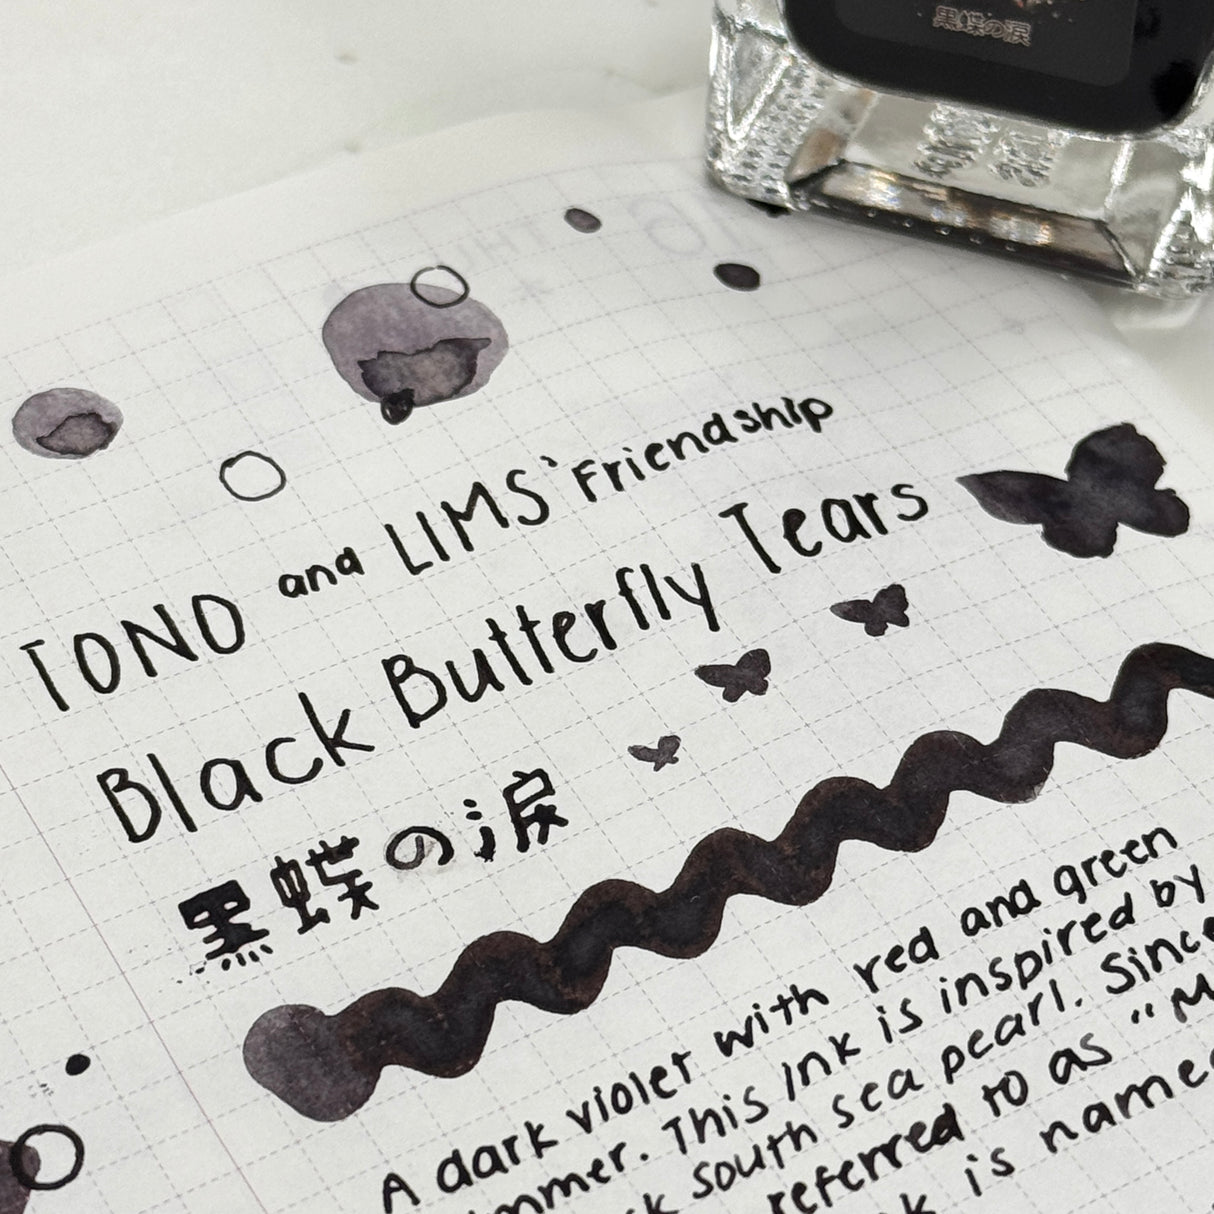 黒蝶の涙
THU
16
TONO and LIMS' Friendship
Black Butterfly Tears
黒蝶の涙
A dark violet with red and green
This ink is inspired by
south sea pearl. Since
referred to as "M
is name